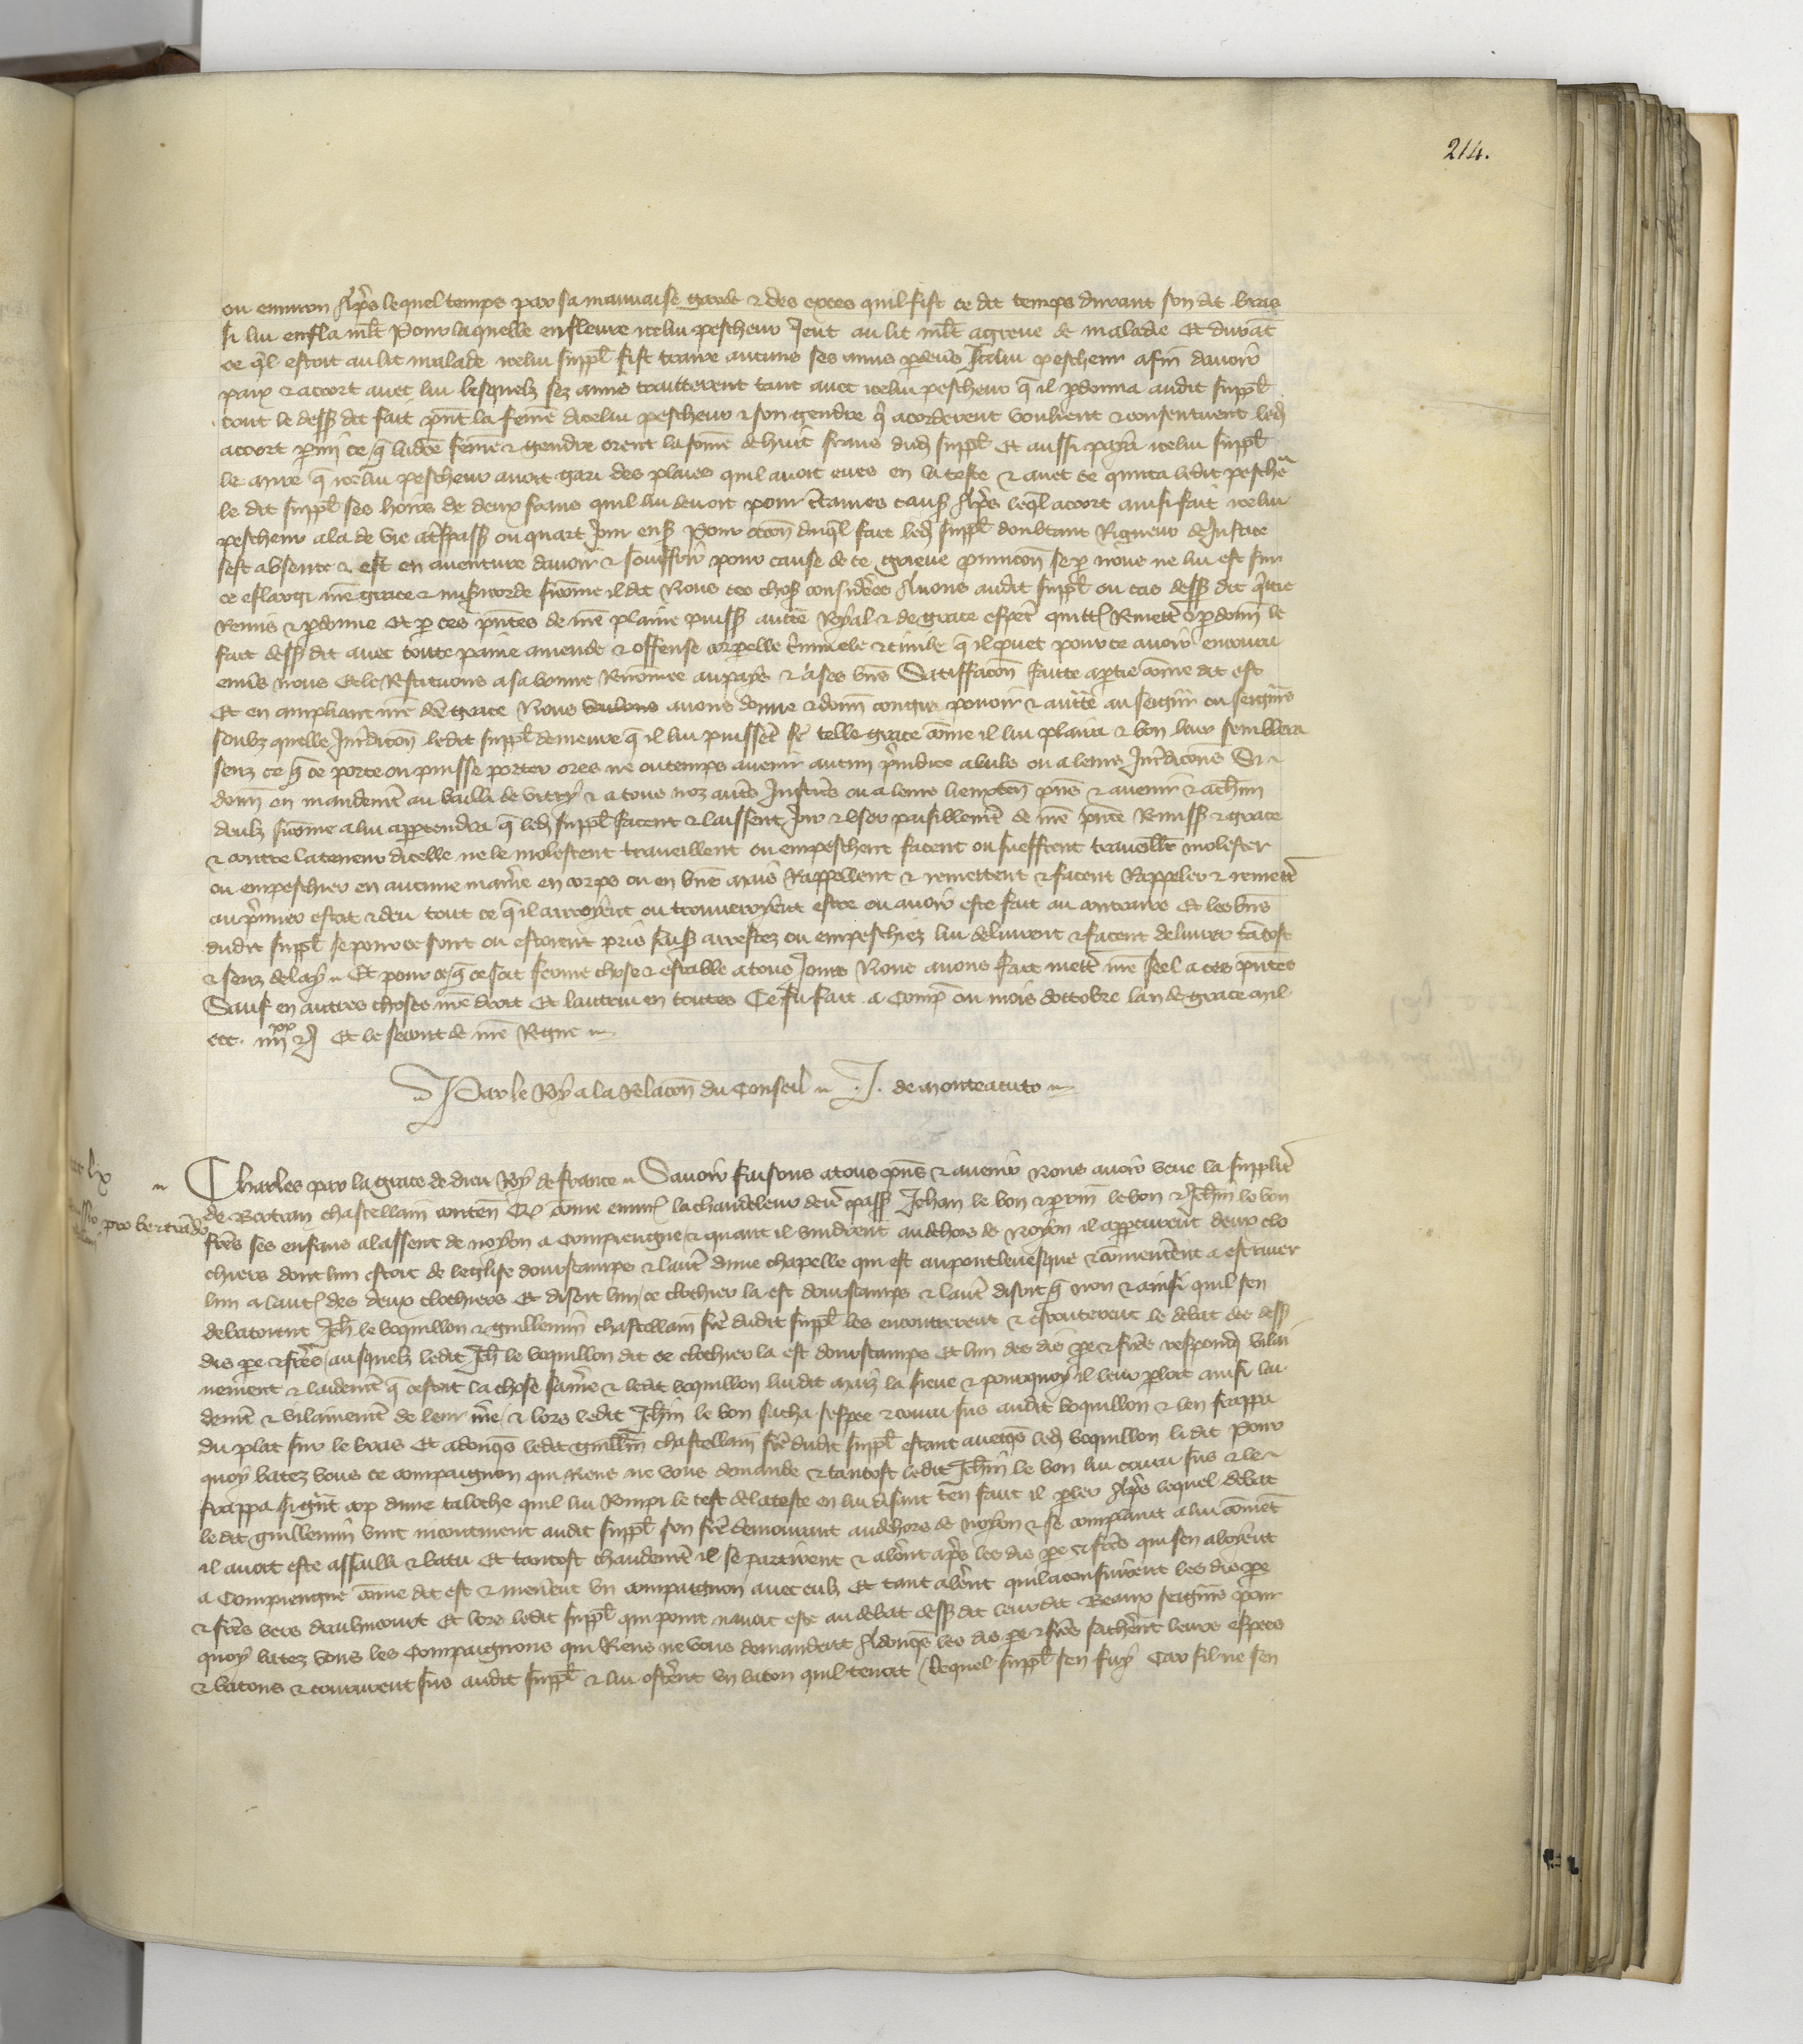 214.
ou environ Apres lequel temps par sa mauvaise garde & des exces quil fist ce dit temps durant son dit bras
si lui enfla mlt Pour laquelle enfleure icelui pescheur Jeut au lit mlt agreve de maladie Et durāt
ce ql estoit au lit malade icelui suppl fist traire aucuns ses amis pdevs Icelui pescheur afin davoir
paix & accort avec lui lesquelz ses amis traitterent tant avec icelui pescheur q il pdonna audit suppl
tout le dess dit fait pnt la feme dicelui pescheur & son gendre qi acorderent voulirent & consentirent led
accort pmi ce q ladce feme & gendre orent la some de huit frans dud suppl Et aussi paya icelui suppl
le mire q icelui pescheur avoit gari des plaies quil avoit eues en la teste & avec ce quicta ledit pescheur
le dit suppl ses hoirs de deux frans quil lui devoit pour ctaines caus Apres leql accort ainsi fait icelui
pescheur ala de vie a tspass ou quart jour ens Pour occon duql fait led suppl doubtant Rigueur de Justice
sest absente & est en aventure davoir & souffrir pour cause de ce grieve punicon se p nous ne lui est sur
ce eslargi nre grace & misicorde sicome il dit Nous ces chos considerees Avons audit suppl ou cas dess dit qicte
Remis & pdonne Et p ces pntes de nre plaine puiss aucte Royal & de grace especl quittos Remettos & pdonns le
fait dess dit avec toute paine amende & offense corporelle criminele & civile q il puet pour ce avoir encouru
envs nous Et le Restituons a sa bonne Renomee au pays & a ses bns Satiffacon faitte a ptie come dit est
Et en ampliant nre dce grace Nous voulons avons donne & donns congie povoir & auctte au seignr ou seigns
soubz quelle Juridicon ledit suppl demeure q il lui puissent fe telle grace come il lui plaira & bon leur semblera
senz ce q ce porte ou puisse porter ores ne ou temps avenir aucun pjudice a culs ou a leurs Juridicons Si
donns en mandemt au bailli de vitry & a tous noz autres Justics ou a leurs lieuxtens pns & avenir & a chun
deulz sicome a lui apptendra q led suppl facent & laissent Joir & user paisiblemt de nre pnte Remiss & grace
& contre la teneur dicelle ne le molestent traveillent ou empeschent facent ou sueffrent traveillr molester
ou empeschier en aucune maniere en corps ou en bns mais Rappellent & remettent & facent Rappeler & remettre
au pmier estat & deu tout ce q il arroyent ou trouveroyent estre ou avoir este fait au contraire Et les bns
dudit suppl se pour ce sont ou estoient pris saiss arrestez ou empeschiez lui delivrent & facent delivrer tātost
& senz delay Et pour ce q ce soit ferme chose & estable a tous Jours Nous avons fait mettre nre seel a ces pntes
Sauf en autres choses nre droit Et lautrui en toutes Ce fu fait a Comp ou mois doctobre lan de grace mil
ccc. iiiixx & j Et le second de nre Regne
Par le Roy a la Relacon du Conseil J. de monteacuto
lx
pro bertrādo
Charles par la grace de dieu Roy de france Savoir faisons a tous pns & avenir Nous avoir veue la supplicr
de Bertran chastellain contens Que come environ la chandeleur deur pass Jehan le bon & prrin le bon & Jehin le bon
fres ses enfans alassent de noyon a Compiengne & quant il vindrent au dehors de Noyon il apperceurent deux clo
chiers dont lun estoit de leglise dourstamps & lautre dune chapelle qui est au pontlevesque & comencerent a estriver
lun a lautre des deux clochiers Et disoit lun ce clochier la est dourstamps & lautre disoit q non & ainsi quil sen
debatoient Jeh le boquillon & guillemin chastellain fre dudit suppl les encontrerent & escouterent le debat des dess
dis pe & freres ausquelz ledit Jeh le boquillon dit ce clochier la est dourstamps Et lun des dis pe & freres respondi vilai
nement & laidement q cestoit la chose sa mere & ledit boquillon lui dit mais la sieue & pourquoy il leur ploit ainsi lai
demt & vilainemt de leur me & lors ledit Jehin le bon sacha sespee & couru sus audit boquillon & len frappa
du plat sur le bras Et adonqs ledit guillemin chastellain fre dudit suppl estant aveqs led boquillon li dit Pour
quoy batez vous ce compaignon qui Riens ne vous demande & tantost ledit Jehin le bon lui couru sus & le
frappa si grant cop dune taloche quil lui Rompi le test de la teste en lui disant ten faut il pler Apres lequel debat
ledit guillemin vint incontinent audit suppl son fre demourant au dehors de noyon & se complaint a lui comēt
il avoit este assailli & batu Et tantost chaudemt il se partirent & alerent apres les dis pe & freres qui sen aloyent
a Compiengne come dit est & menerent un compaignon avec eulz Et tant alerent quil aconsuirent les dis pe
& freres vers deulincourt Et lors ledit suppl qui point navoit este au debat dess dit leur dit Beaux seignrs pour
quoy batez vous les Compaignons qui Riens ne vous demandent Adonqs les dis pe & freres sacherent leurs espees
& batons & coururent sus audit suppl & lui osterent un baton quil tenoit Lequel suppl sen fuy Car sil ne sen